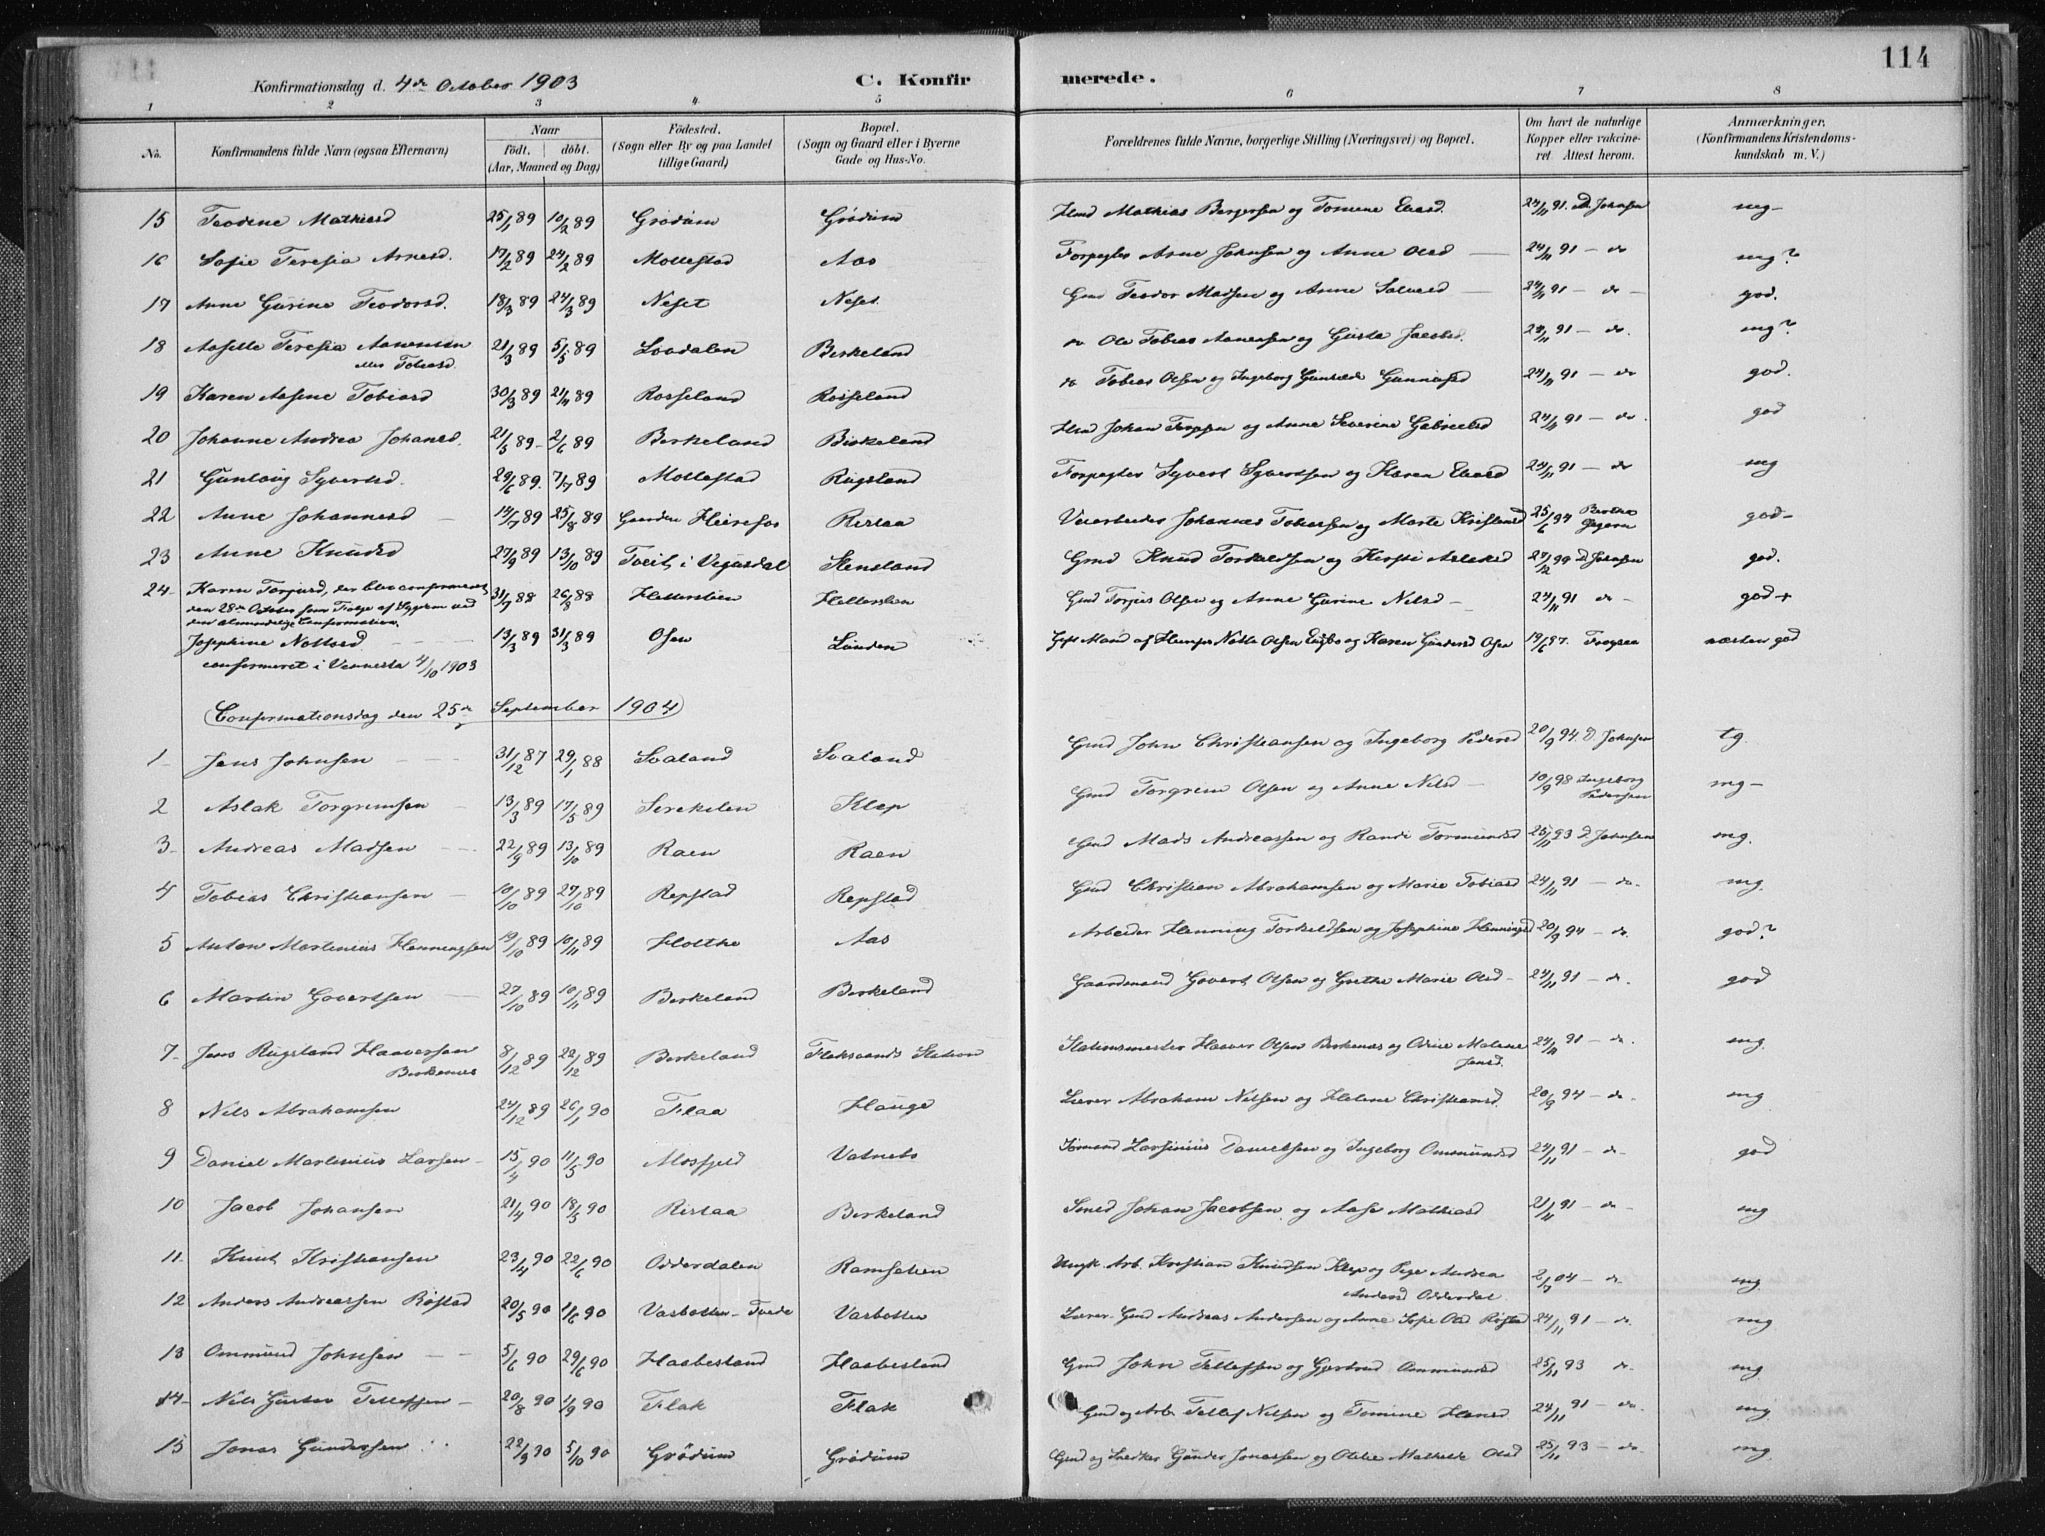 114
Konfirmationsdag d. 4de October 1903 C. Konfirmerede.
1 2 3 4 5 6 7 8
No. Konfirmandens fulde Navn (ogsaa Efternavn) Naar födt. döbt. (Aar, Maaned og Dag) Födested. (Sogn eller By og paa Landet tillige Gaard) Bopæl. (Sogn og Gaard eller i Byerne Gade og Hus-No. Forældrenes fulde Navne, borgerlige Stilling (Næringsvei) og Bopæl. Om havt de naturlige Kopper eller vakcineret. Attest herom. Anmærkninger. (Konfirmandens Kristendomskundskab m. V.)
15 Teodine Mathiasd 25/1 89 10/2 89 Grödum Grödum Hmd Mathias Bergersen og Tomine Eliasd. 24/11 91. D. Johnsen mg-
16 Sofie Teresia Arnesd. 17/2 89 24/2 89 Mollestad Aas Forpagter Arne Johnsen og Anne Olsd 24/11 91 - do mg?
17 Anne Gurine Teodorsd. 18/3 89 24/3 89 Neset Neset Gmd Teodor Madsen og Anne Salvesd 24/11 91 - do - god.
18 Aaselle Teresia Aanensen eller Tobiasd. 21/3 89 5/5 89 Lovdalen Birkeland do Ole Tobias Aanensen og Gusta Jacobsd. 24/11 91 - do. mg?
19 Karen Aasine Tobiasd 30/3 89 21/4 89 Rosseland Rosseland do Tobias Olsen og Ingeborg Gunhilde Gunnufsd 24/11 91 - do god.
20 Johanne Andrea Johansd. 21/3 89 - 2/6 89 Birkeland Birkeland Hmd Johan Terppen og Anne Severine Gabrielsd 24/11 91 - do. god
21 Gunlaug Syvertsd. 29/6 89. 7/7 89 Mollestad Rugsland Forpagter Syvert Syvertsen og Karen Eliasd 24/11 91 - do mg
22 Anne Johannesd 14/7 89 25/8 89 Gaarden Heirefos Ristaa Veiarbeider Johannes Tobiassen og Marte Kristensd 25/6 94 god-
23 Anne Knudsd 27/9 89 13/10 89 Tveit i Vegusdal Stensland Gmd Knud Torkeldsen og Kirsti Aslaksd 27/12 99 D Johnsen god.
24 Karen Torjusd, der blev confirmeret den 28de October som Følge af Sygdom ved den almindelige Confirmation. 31/7 88 26/8 88 Hellerslien Hellerslien Gmd Torjus Olsen og Anne Gurine Nilsd - 24/11 91 do - god +
Josephine Nottesd confirmeret i Vennesla 4/10 1903 13/3 89 31/3 89 Osen Lunden Gift Mand af Notto Olsen og Karen Gundersd Osen 19/6 97. næsten god
Confirmationsdag den 25de September 1904
1 Jens Johnsen 31/12 87 29/1 88 Svaland Svaland Gmd John Christiansen og Ingeborg Pedersd 20/9 94. D. Johnsen tg.
2 Aslak Torgrimsen 13/3 89 17/5 89 Senekilen Klep Gmd Torgrim Olsen og Anne Nilsd - 10/9 98 Ingeborg Pedersen mg-
3 Andreas Madsen 22/9 89 13/10 89 Raen Raen Gmd Mads Andreassen og Randi Tormundsd 25/11 93 D Johnsen mg.
4 Tobias Christiansen 10/10 89 27/10 89 Repstad Repstad Gmd Christian Abrahamsen og Marie Tobiasd 24/11 91 - do. mg.
5 Anton Martinius Henningsen 19/10 89 10/11 89 Holthe Aas Arbeider Henning Torkeldsen og Josephine Henningsd 20/9 94 - do. god?
6 Martin Govertsen 27/10 89 10/11 89 Birkeland Birkeland Gaardmand Govert Olsen og Grethe Marie Olsd - 24/11 91 - do. god
7 Jens Rugsland Haaversen Birkenes 8/12 89 22/12 89 Birkeland Flaksvands Station Stationsmester Haaver Olsen Birkenes og Odine Malene Jensd. 24/11 91 - do. mg.
8 Nils Abrahamsen 24/12 89 26/1 90 Flaa Hauge Lærer Abraham Nilsen og Helene Christiansd. 20/9 94 - do. mg
9 Daniel Martinius Larsen 15/4 90 11/5 90 Mosfjeld Vatneto Sömand Larsinius Danielsen og Ingeborg Ommundsd 24/11 91 - do - god
10 Jacob Johansen 21/4 90 18/5 90 Ristaa Birkeland Smed Johan Jacobsen og Aase Mathiasd 21/4 91 - do - mg
11 Knut Kristiansen 23/4 90 22/6 90 Odderdalen Ramselien Ungk. Arb. Kristian Knudsen Klep og Pige Andrea Andersd Odderdal 2/7 04 - do mg
12 Anders Andreassen Röstad 20/5 90 1/6 90 Vasbotten - Tveide Vasbotten Lærer. Gmd Andreas Andersen og Anne Sofie Olsd Röstad 24/11 91 - do. mg
13 Ommund Johnsen 5/6 90 29/6 90 Haabesland Haabesland Gmd John Tellefsen og Gjertrud Ommundsd 25/11 93 do mg
14 Nils Gustav Tellefsen - 20/8 90 1/9 90 Flak Flak Gmd og Arb. Tellef Nilsen og Tomine Hansd 24/11 91 - do. mg.
15 Jonas Gundersen 22/9 90 5/10 90 Grödum Grödum Gmd og Snedker Gunder Jonassen og Otilie Mathilde Olsd 25/11 93 - do. mg.